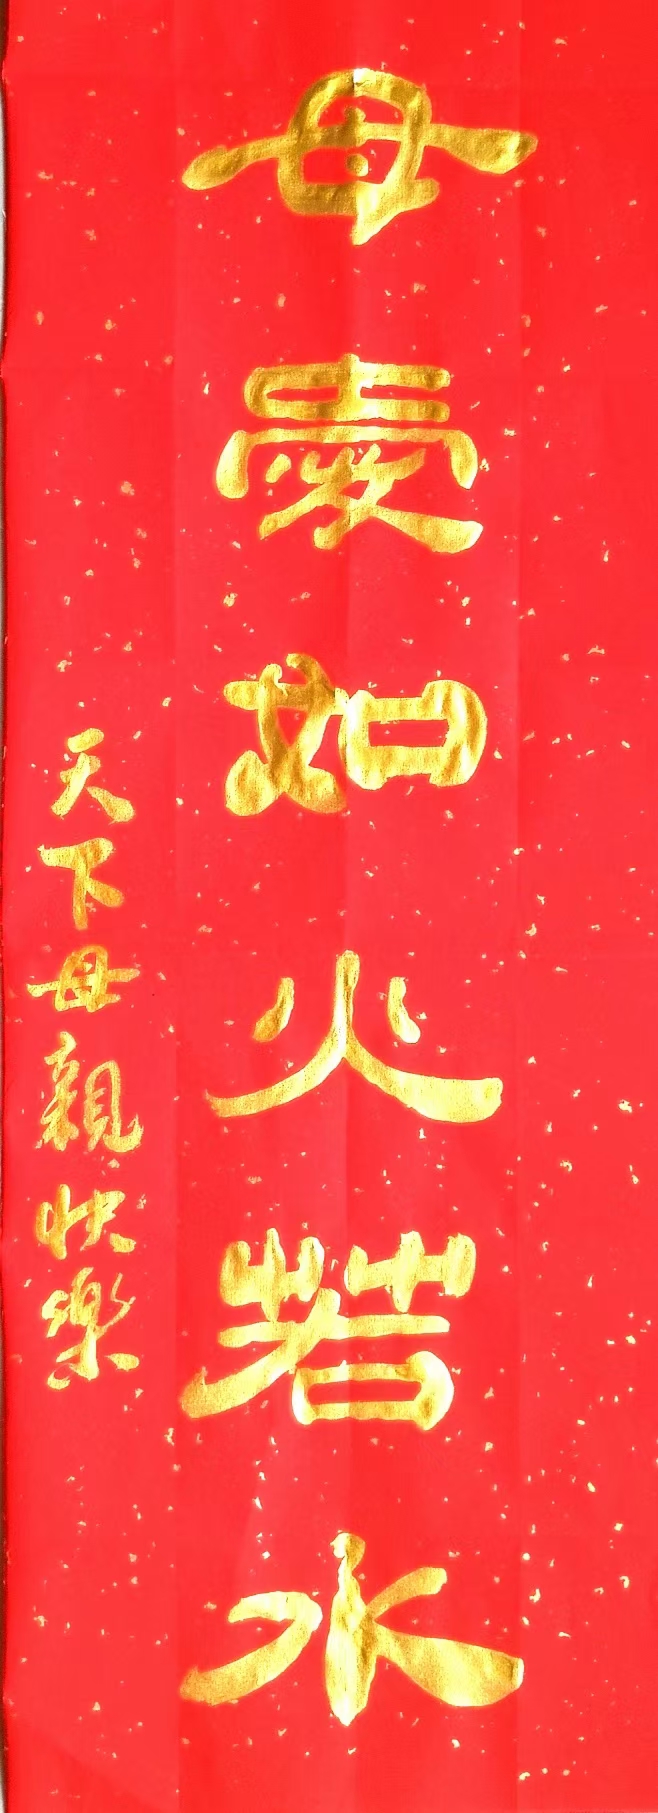 母愛如火若水
天下母親快樂